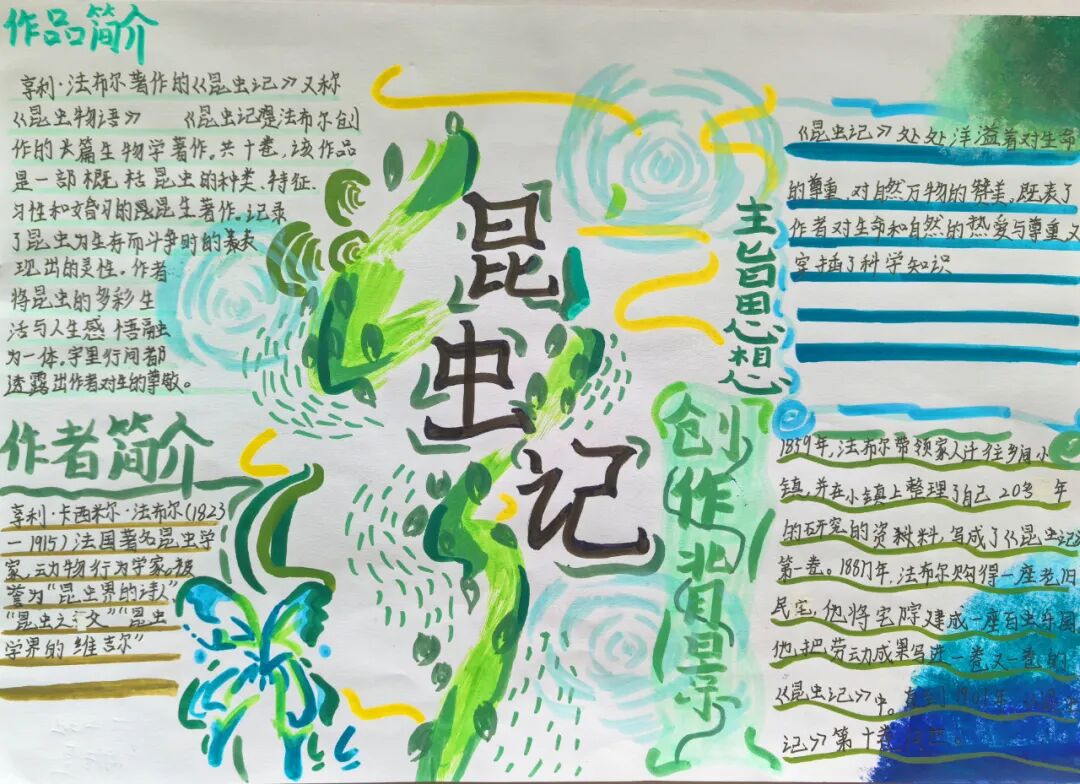 作品简介
亨利·法布尔著作的《昆虫记》又称
《昆虫物语》 《昆虫记是法布尔创
作的长篇生物学著作。共十卷，该作品
是一部概括昆虫的种类、特征、
习性和婚习的昆虫生著作。记录
了昆虫为生存而斗争时的表
现出的灵性。作者
将昆虫的多彩生
活与人生感悟融
为一体，字里行间都
透露出作者对生的尊敬。
作者简介
亨利·卡西米尔·法布尔(1823
－1915)法国著名昆虫学
家，动物行为学家。被
誉为“昆虫界的诗人”
“昆虫之父”“昆虫
学界的维吉尔”
昆虫记
主旨思想
《昆虫记》处处洋溢着对生命
的尊重，对自然万物的赞美，既表了
作者对生命和自然的热爱与尊重又
穿插了科学知识
创作背景
1859年，法布尔带领家人迁往乡间小
镇，并在小镇上整理了自己20多年
的研究的资料料，写成了《昆虫记》
第一卷。1887年，法布尔购得一座老旧
民宅，他将宅院建成一座百虫乐园
他把劳动成果写进一卷又一卷的
《昆虫记》中。直到19 年，
记》第十卷